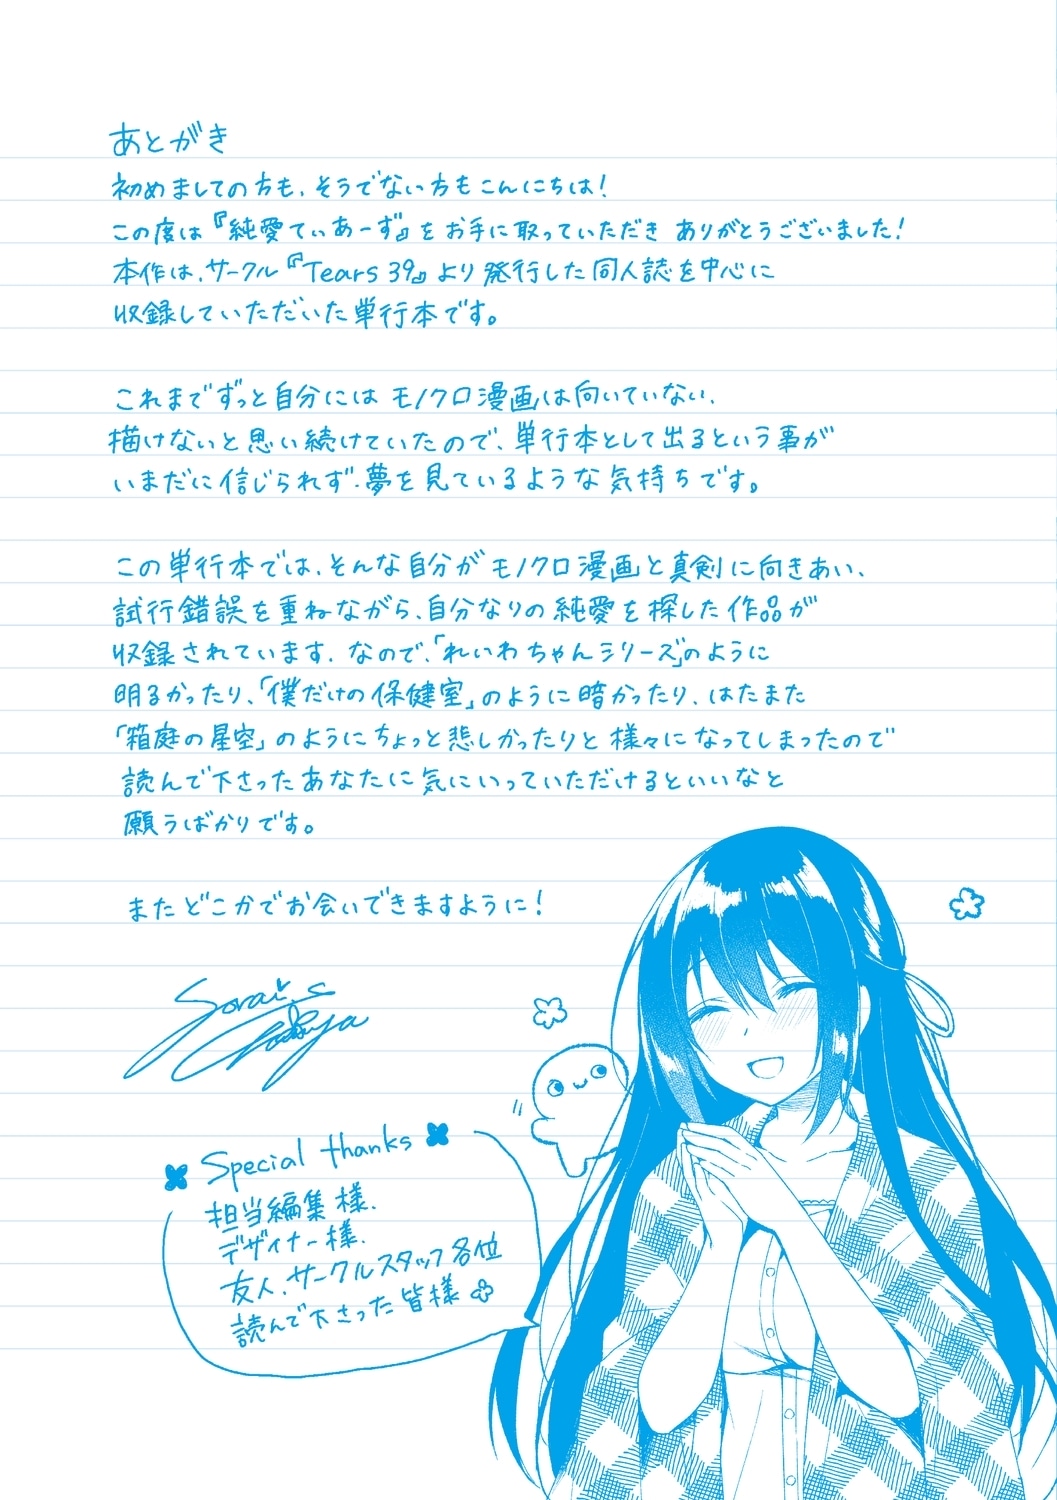 あとがき
初めましての方も、そうでない方もこんにちは!
この度は『純愛てぃあーず』をお手に取っていただき ありがとうございました!
本作は、サークル『Tears 39』より発行した同人誌を中心に
収録していただいた単行本です。
これまでずっと自分には モノクロ漫画は向いていない、
描けないと思い続けていたので、単行本として出るという事が
いまだに信じられず、夢を見ているような気持ちです。
この単行本では、そんな自分が モノクロ漫画と真剣に向きあい、
試行錯誤を重ねながら、自分なりの純愛を探した作品が
収録されています。なので、「れいわちゃんシリーズ」のように
明るかったり、「僕だけの保健室」のように暗かったり、はたまた
「箱庭の星空」のようにちょっと悲しかったりと様々になってしまったので
読んで下さったあなたに気にいっていただけるといいなと
願うばかりです。
またどこかでお会いできますように!
Sorai
Special thanks
担当編集様、
デザイナー様、
友人、サークルスタッフ各位
読んで下さった皆様